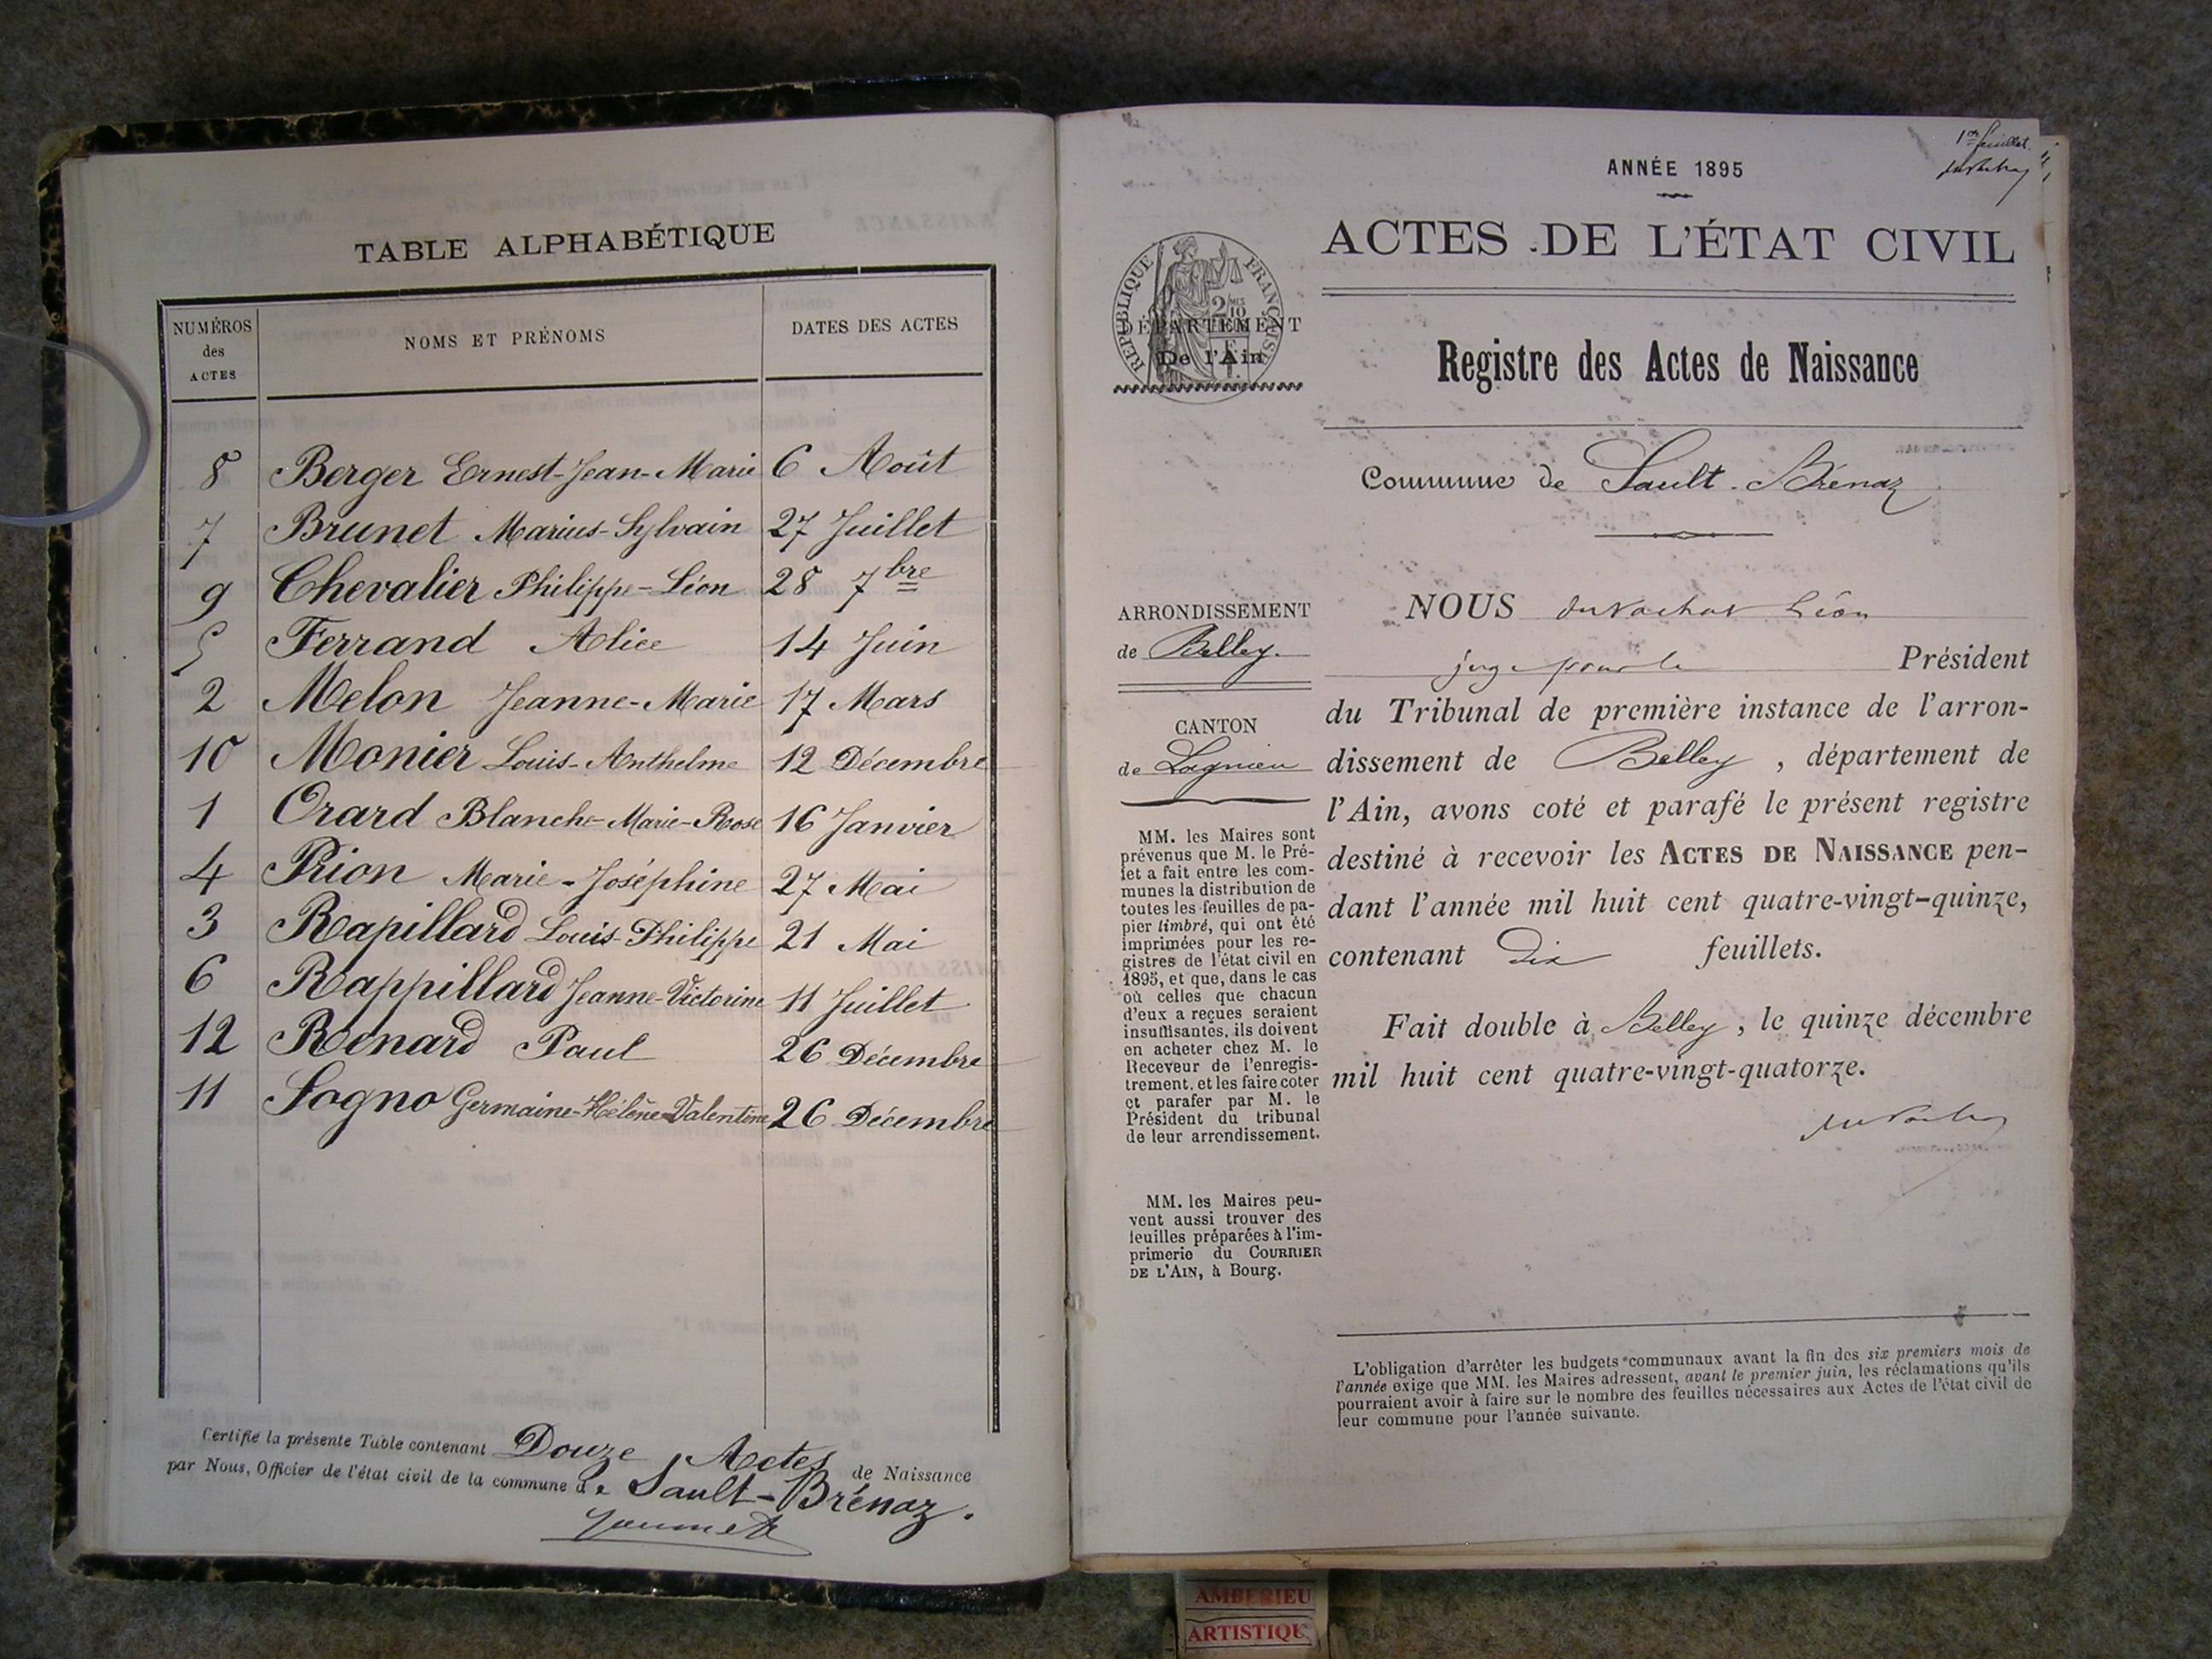 TABLE ALPHABÉTIQUE
NUMÉROS
des
ACTES
NOMS ET PRÉNOMS
DATES DES ACTES
8 Berger Ernest-Jean-Marie 6 Août
7 Brunet Marius-Sylvain 27 Juillet
9 Chevalier Philippe-Léon 28 7bre
5 Ferrand Alice 14 Juin
2 Melon Jeanne-Marie 17 Mars
10 Monier Louis-Anthelme 12 Décembre
1 Orard Blanche-Marie-Rose 16 Janvier
4 Prion Marie-Joséphine 27 Mai
3 Rapillard Louis-Philippe 21 Mai
6 Rappillard Jeanne-Victorine 11 Juillet
12 Renard Paul 26 Décembre
11 Sogno Germaine-Hélène-Valentine 26 Décembre
Certifié la présente Table contenant Douze Actes de Naissance
par Nous, Officier de l'état civil de la commune de Sault-Brénaz.
1er feuillet
ANNÉE 1895
ACTES DE L'ÉTAT CIVIL
RÉPUBLIQUE FRANÇAISE
DÉPARTEMENT
De l'Ain
Registre des Actes de Naissance
Commune de Sault-Brénaz
ARRONDISSEMENT
de Belley.
CANTON
de Lagnieu
MM. les Maires sont
prévenus que M. le Pré-
fet a fait entre les com-
munes la distribution de
toutes les feuilles de pa-
pier timbré, qui ont été
imprimées pour les re-
gistres de l'état civil en
1895, et que, dans le cas
où celles que chacun
d'eux a reçues seraient
insuffisantes, ils doivent
en acheter chez M. le
Receveur de l'enregis-
trement, et les faire coter
et parafer par M. le
Président du tribunal
de leur arrondissement.
MM. les Maires peu-
vent aussi trouver des
feuilles préparées à l'im-
primerie du COURRIER
DE L'AIN, à Bourg.
NOUS Léon
juge pour le Président
du Tribunal de première instance de l'arron-
dissement de Belley, département de
l'Ain, avons coté et parafé le présent registre
destiné à recevoir les ACTES DE NAISSANCE pen-
dant l'année mil huit cent quatre-vingt-quinze,
contenant Dix feuillets.
Fait double à Belley, le quinze décembre
mil huit cent quatre-vingt-quatorze.
L'obligation d'arrêter les budgets communaux avant la fin des six premiers mois de
l'année exige que MM. les Maires adressent, avant le premier juin, les réclamations qu'ils
pourraient avoir à faire sur le nombre des feuilles nécessaires aux Actes de l'état civil de
leur commune pour l'année suivante.
AMBERIEU
ARTISTIQU